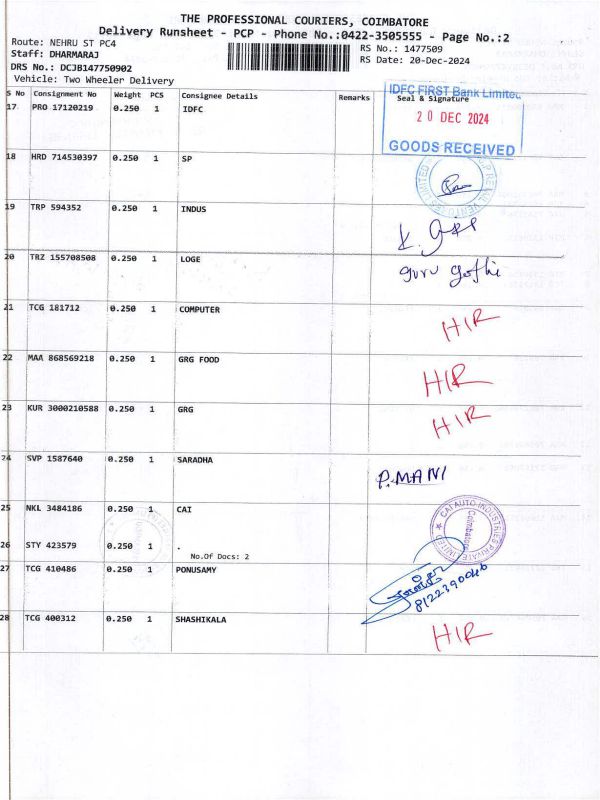 THE PROFESSIONAL COURIERS, COIMBATORE
Delivery Runsheet - PCP - Phone No.:0422-3505555 - Page No.:2
Route: NEHRU ST PC4
Staff: DHARMARAJ
DRS No.: DCJB147750902
Vehicle: Two Wheeler Delivery
RS No.: 1477509
RS Date: 20-Dec-2024
S No Consignment No Weight PCS Consignee Details Remarks Seal & Signature
17 PRO 17120219 0.250 1 IDFC
IDFC FIRST Bank Limited
20 DEC 2024
GOODS RECEIVED
18 HRD 714530397 0.250 1 SP
19 TRP 594352 0.250 1 INDUS
20 TRZ 155708508 0.250 1 LOGE
guru
21 TCG 181712 0.250 1 COMPUTER HIR
22 MAA 868569218 0.250 1 GRG FOOD HIR
23 KUR 3000210588 0.250 1 GRG HIR
24 SVP 1587640 0.250 1 SARADHA P.MANI
25 NKL 3484186 0.250 1 CAI
CAI AUTO INDUSTRIES PRIVATE LIMITED
Coimbatore
26 STY 423579 0.250 1 .
No.Of Docs: 2
27 TCG 410486 0.250 1 PONUSAMY
8122390046
28 TCG 400312 0.250 1 SHASHIKALA HIR